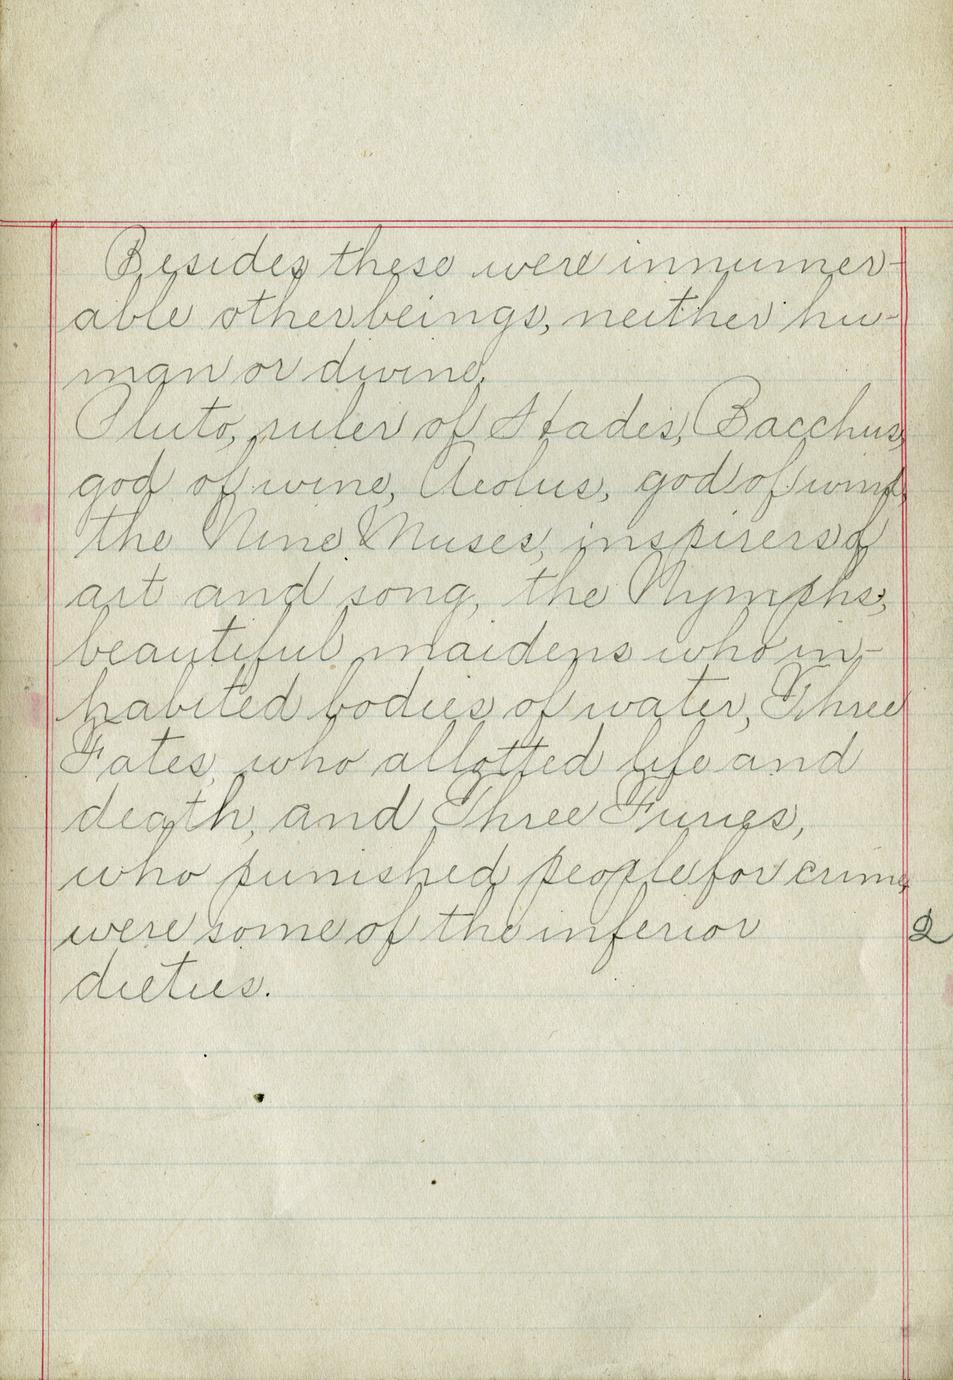 Besides these were innumer-
able other beings, neither hu-
man or divine.
Pluto, ruler of Hades, Bacchus,
god of wine, Aeolus, god of wind,
the Nine Muses, inspirers of
art and song, the Nymphs,
beautiful maidens who in-
habited bodies of water, Three
Fates, who allotted life and
death, and Three Furies,
who punished people for crime,
were some of the inferior
2
dieties.